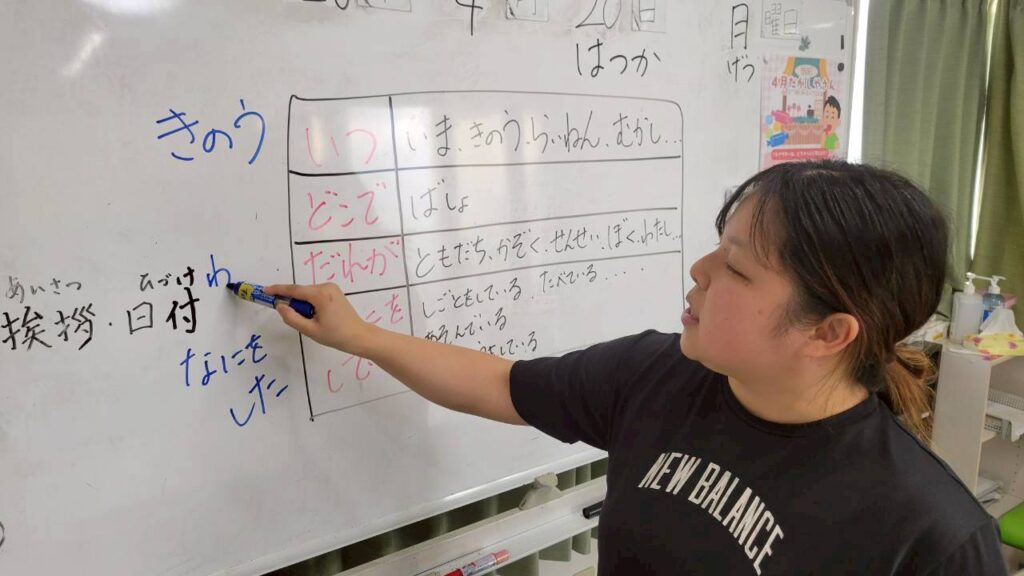 4 月 20 日
はつか
月 曜日
げつ
4月
きのう
いつ いま、きのう、らいねん、むかし...
どこで ばしょ
だれが ともだち、かぞく、せんせい、ぼく、わたし...
しごとをしている たべている.....
あそんでいる
している
を
して
あいさつ ひづけ
挨拶・日付
わ
なにを
した
NEW BALANCE